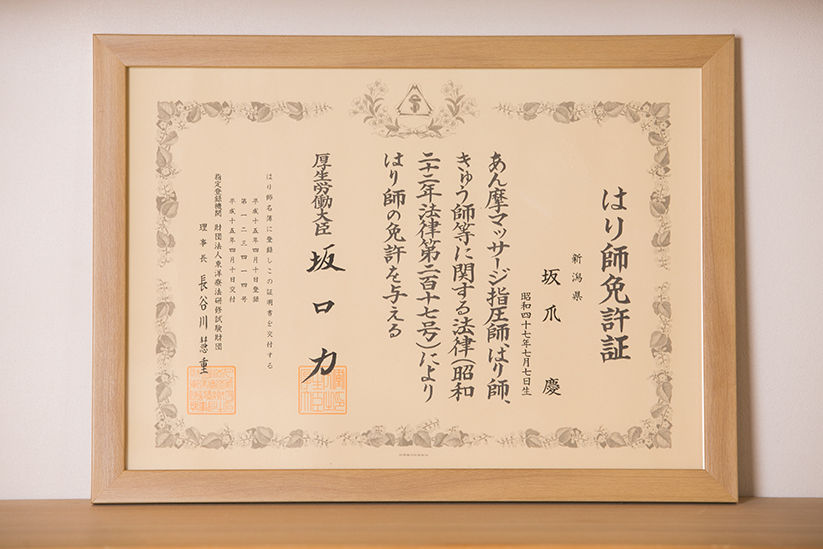 はり師免許証
新潟県
坂爪 慶
昭和四十七年七月七日生
あん摩マッサージ指圧師、はり師、
きゅう師等に関する法律(昭和
二十二年法律第二百十七号)により
はり師の免許を与える
厚生労働大臣 坂口力
はり師名簿に登録しこの証明書を交付する
平成十五年四月十日登録
第一二三四一四号
平成十五年四月十日交付
指定登録機関 財団法人東洋療法研修試験財団
理事長 長谷川慧重